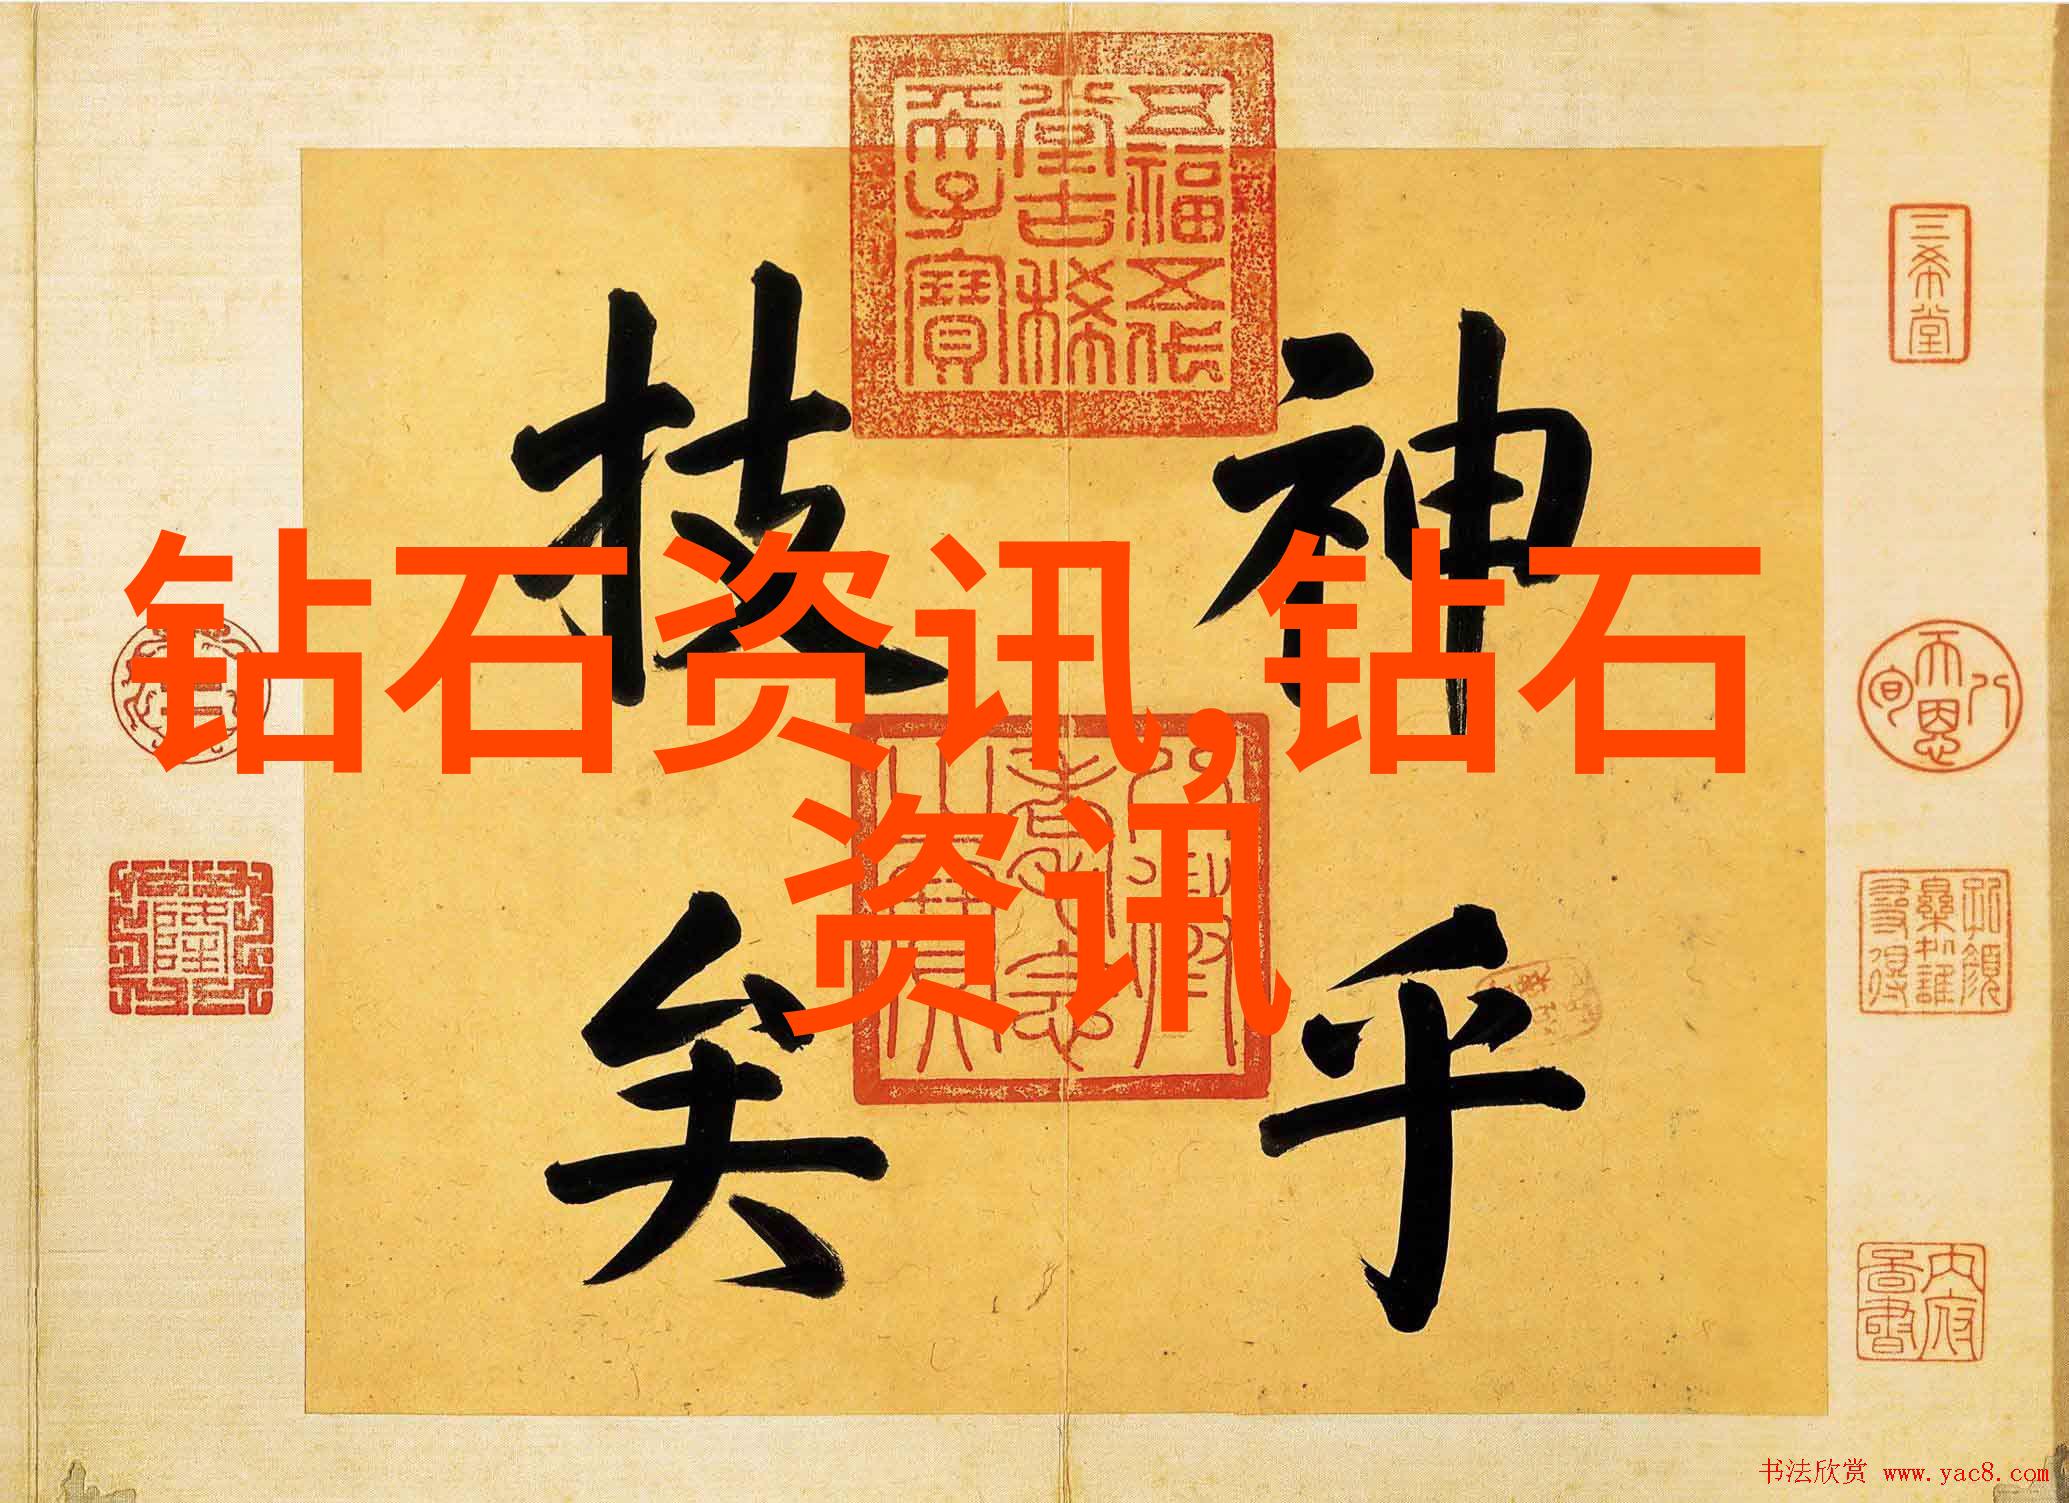 钻石资讯,钻石
资讯
神乎
技矣
五福五代
堂古稀
天子寶
八徵
耄念
之寶
三希堂
書法欣赏 www.yac8.com